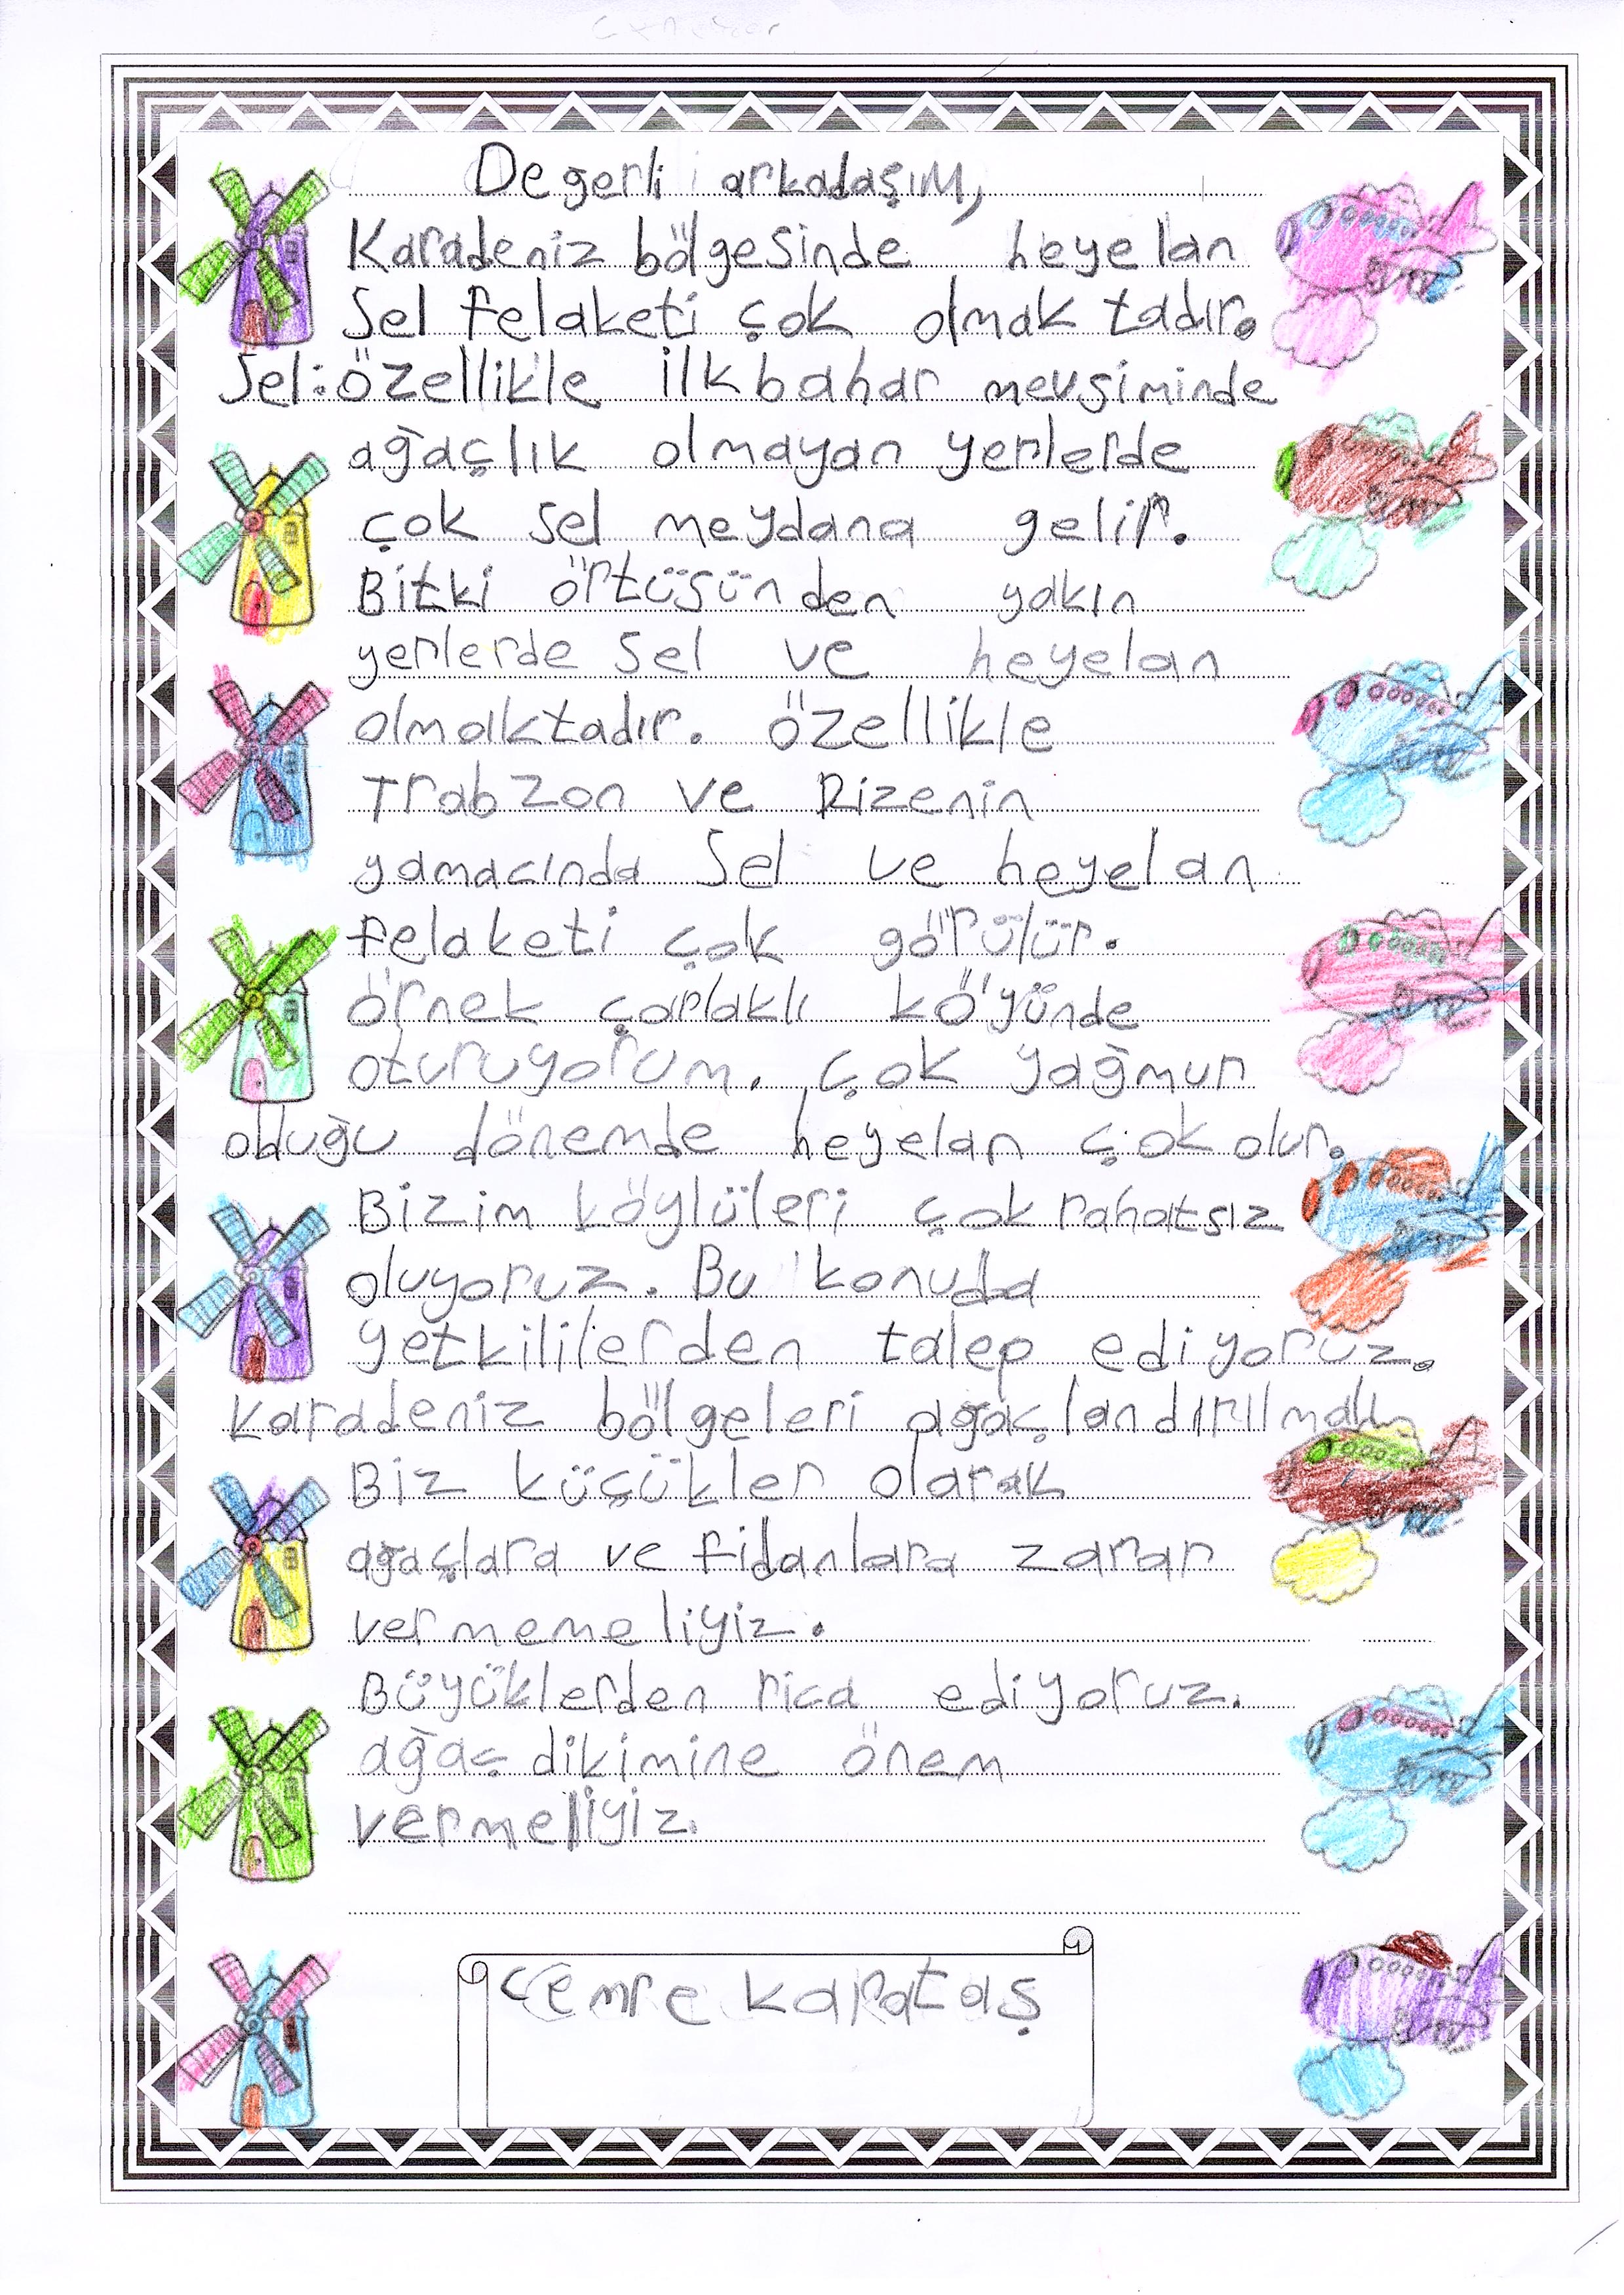 Degerli arkadaşım,
Karadeniz bölgesinde heyelan
Sel felaketi çok olmak tadır.
Sel: özellikle ilkbahar mevsiminde
ağaçlık olmayan yerlerde
çok sel meydana gelir.
Bitki örtüsünden yakın
yerlerde sel ve heyelan
olmaktadır. özellikle
Trabzon ve Rizenin
yamacında Sel ve heyelan
felaketi çok görülür.
örnek çarlaklı köyünde
oturuyorum. çok yağmur
olduğu dönemde heyelan çok olur.
Bizim köylüleri çok rahatsız
oluyoruz. Bu konuda
yetkililerden talep ediyoruz.
karadeniz bölgeleri ağaçlandırılmalı
Biz küçükler olarak
ağaçlara ve fidanlara zarar
vermemeliyiz.
Büyüklerden rica ediyoruz.
ağaç dikimine önem
vermeliyiz.
cemre karataş